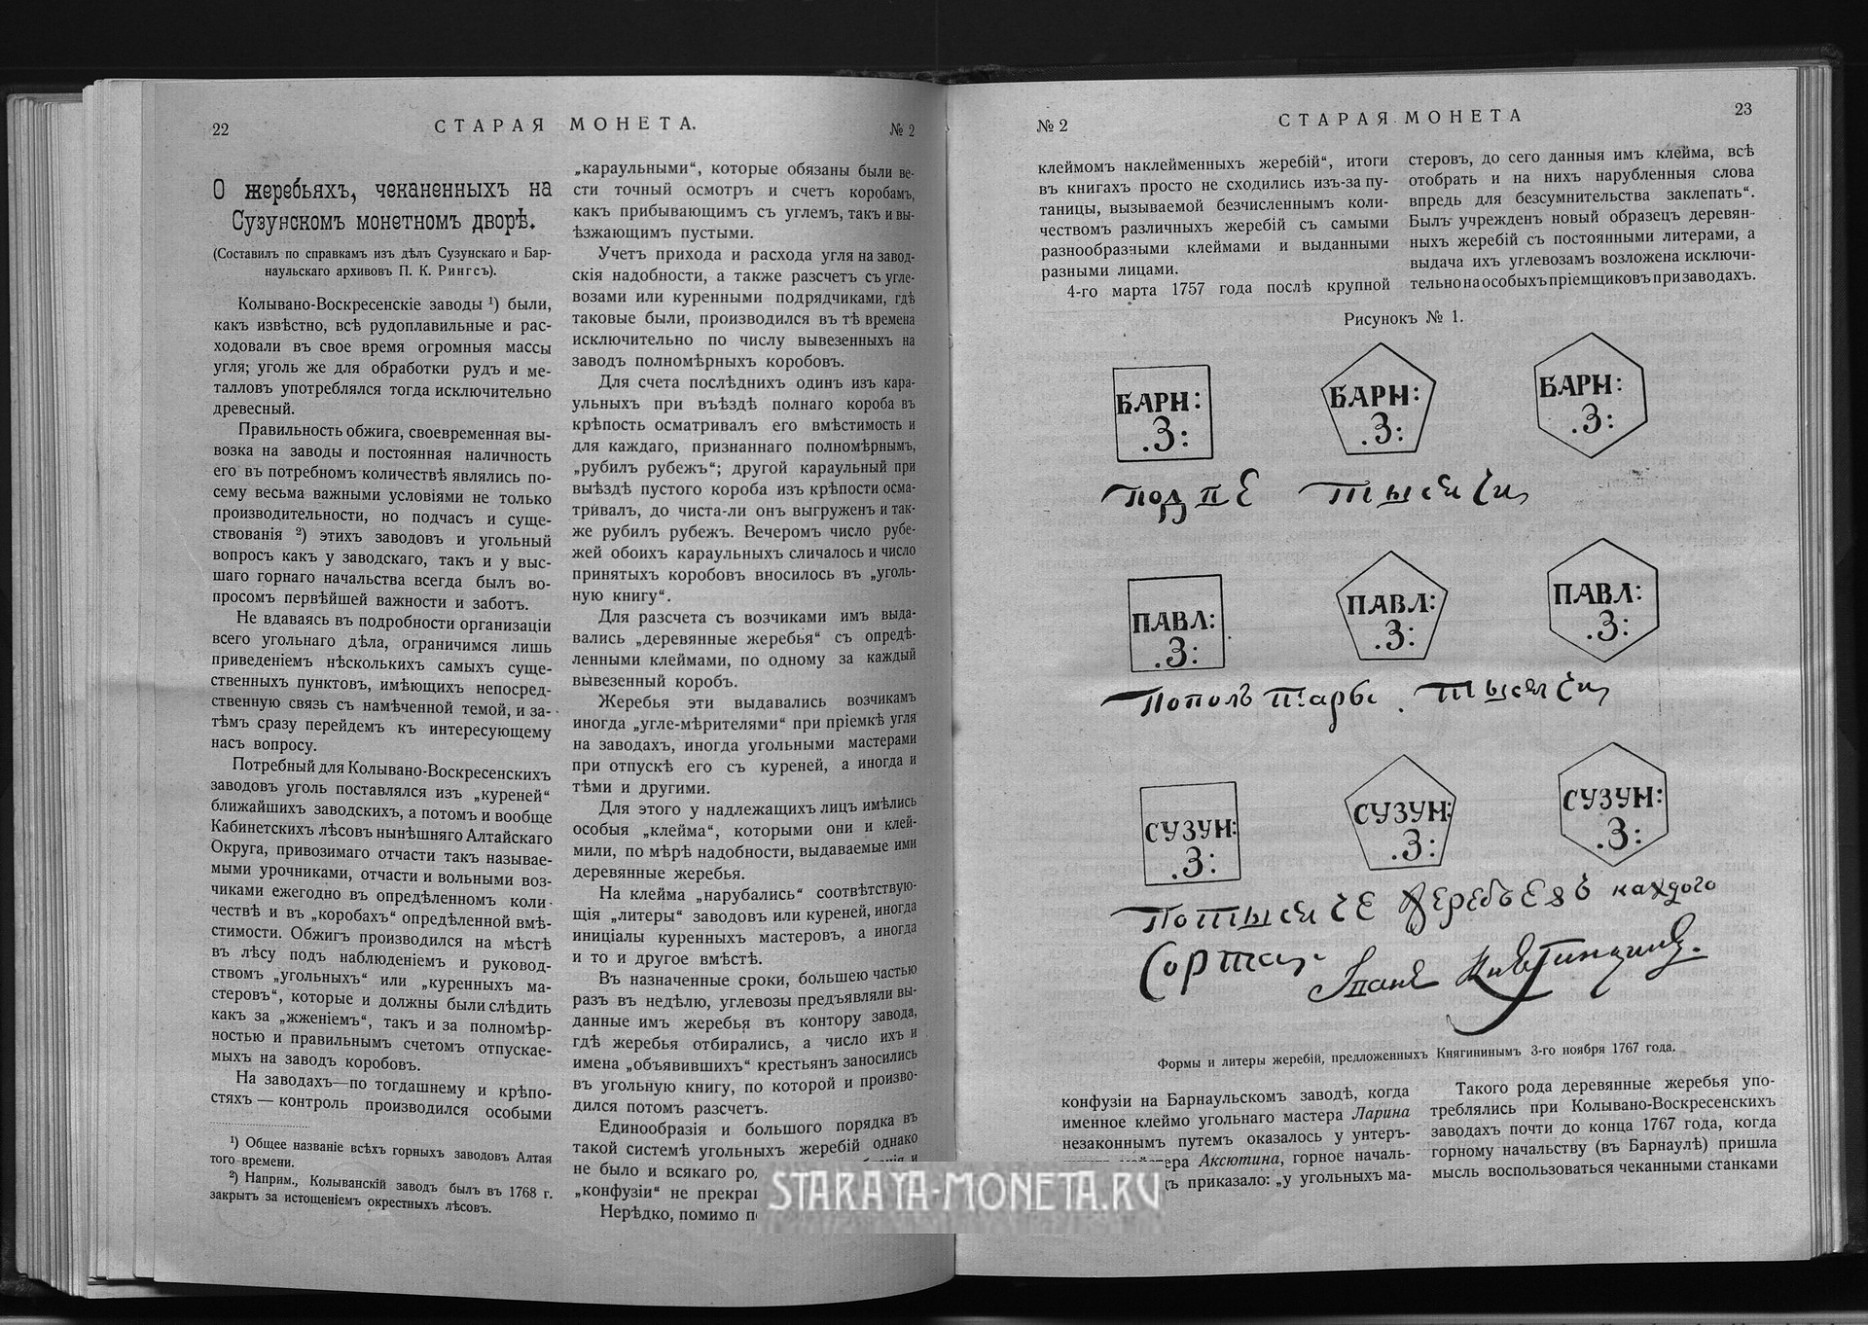 22
СТАРАЯ МОНЕТА.
№ 2
О жеребьяхъ, чеканенныхъ на
Сузунскомъ монетномъ дворѣ.
(Составилъ по справкамъ изъ дѣлъ Сузунскаго и Бар-
наульскаго архивовъ П. К. Рингсъ).
Колывано-Воскресенскіе заводы ¹) были,
какъ извѣстно, всѣ рудоплавильные и рас-
ходовали въ свое время огромныя массы
угля; уголь же для обработки рудъ и ме-
талловъ употреблялся тогда исключительно
древесный.
Правильность обжига, своевременная вы-
возка на заводы и постоянная наличность
его въ потребномъ количествѣ являлись по-
сему весьма важными условіями не только
производительности, но подчасъ и суще-
ствованія ²) этихъ заводовъ и угольный
вопросъ какъ у заводскаго, такъ и у выс-
шаго горнаго начальства всегда былъ во-
просомъ первѣйшей важности и заботъ.
Не вдаваясь въ подробности организаціи
всего угольнаго дѣла, ограничимся лишь
приведеніемъ нѣсколькихъ самыхъ суще-
ственныхъ пунктовъ, имѣющихъ непосред-
ственную связь съ намѣченной темой, и за-
тѣмъ сразу перейдемъ къ интересующему
насъ вопросу.
Потребный для Колывано-Воскресенскихъ
заводовъ уголь поставлялся изъ „куреней“
ближайшихъ заводскихъ, а потомъ и вообще
Кабинетскихъ лѣсовъ нынѣшняго Алтайскаго
Округа, привозимаго отчасти такъ называе-
мыми урочниками, отчасти и вольными воз-
чиками ежегодно въ опредѣленномъ коли-
чествѣ и въ „коробахъ“ опредѣленной вмѣ-
стимости. Обжигъ производился на мѣстѣ
въ лѣсу подъ наблюденіемъ и руковод-
ствомъ „угольныхъ“ или „куренныхъ ма-
стеровъ“, которые и должны были слѣдить
какъ за „жженіемъ“, такъ и за полномѣр-
ностью и правильнымъ счетомъ отпускае-
мыхъ на заводъ коробовъ.
На заводахъ—по тогдашнему и крѣпо-
стяхъ — контроль производился особыми
¹) Общее названіе всѣхъ горныхъ заводовъ Алтая
того времени.
²) Наприм., Колыванскій заводъ былъ въ 1768 г.
закрытъ за истощеніемъ окрестныхъ лѣсовъ.
„караульными“, которые обязаны были ве-
сти точный осмотръ и счетъ коробамъ,
какъ прибывающимъ съ углемъ, такъ и вы-
ѣзжающимъ пустыми.
Учетъ прихода и расхода угля на завод-
скія надобности, а также разсчетъ съ угле-
возами или куренными подрядчиками, гдѣ
таковые были, производился въ тѣ времена
исключительно по числу вывезенныхъ на
заводъ полномѣрныхъ коробовъ.
Для счета послѣднихъ одинъ изъ кара-
ульныхъ при въѣздѣ полнаго короба въ
крѣпость осматривалъ его вмѣстимость и
для каждаго, признаннаго полномѣрнымъ,
„рубилъ рубежъ“; другой караульный при
выѣздѣ пустого короба изъ крѣпости осма-
тривалъ, до чиста-ли онъ выгруженъ и так-
же рубилъ рубежъ. Вечеромъ число рубе-
жей обоихъ караульныхъ сличалось и число
принятыхъ коробовъ вносилось въ „уголь-
ную книгу“.
Для разсчета съ возчиками имъ выда-
вались „деревянные жеребья“ съ опредѣ-
ленными клеймами, по одному за каждый
вывезенный коробъ.
Жеребья эти выдавались возчикамъ
иногда „угле-мѣрителями“ при пріемкѣ угля
на заводахъ, иногда угольными мастерами
при отпускѣ его съ куреней, а иногда и
тѣми и другими.
Для этого у надлежащихъ лицъ имѣлись
особыя „клейма“, которыми они и клей-
мили, по мѣрѣ надобности, выдаваемые ими
деревянные жеребья.
На клейма „нарубались“ соотвѣтствую-
щія „литеры“ заводовъ или куреней, иногда
иниціалы куренныхъ мастеровъ, а иногда
и то и другое вмѣстѣ.
Въ назначенные сроки, большею частью
разъ въ недѣлю, углевозы предъявляли вы-
данные имъ жеребья въ контору завода,
гдѣ жеребья отбирались, а число ихъ и
имена „объявившихъ“ крестьянъ заносились
въ угольную книгу, по которой и произво-
дился потомъ разсчетъ.
Единообразія и большого порядка въ
такой системѣ угольныхъ жеребій однако
не было и всякаго
„конфузіи“ не
Нерѣдко, помимо
STARAYA-MONETA.RU
№ 2
СТАРАЯ МОНЕТА
23
клеймомъ наклейменныхъ жеребій“, итоги
въ книгахъ просто не сходились изъ-за пу-
таницы, вызываемой безчисленнымъ коли-
чествомъ различныхъ жеребій съ самыми
разнообразными клеймами и выданными
разными лицами.
4-го марта 1757 года послѣ крупной
стеровъ, до сего данныя имъ клейма, всѣ
отобрать и на нихъ нарубленныя слова
впредь для безсумнительства заклепать“.
Былъ учрежденъ новый образецъ деревян-
ныхъ жеребій съ постоянными литерами, а
выдача ихъ углевозамъ возложена исключи-
тельно на особыхъ пріемщиковъ при заводахъ.
Рисунокъ № 1.
БАРН: .З:
БАРН: .З:
БАРН: .З:
подпѣ тысячи
ПАВЛ: .З:
ПАВЛ: .З:
ПАВЛ: .З:
тысячи
СУЗУН: .З:
СУЗУН: .З:
СУЗУН: .З:
потысяче жеребьевъ каждого
сорта
Формы и литеры жеребій, предложенныхъ Княгининымъ 3-го ноября 1767 года.
конфузіи на Барнаульскомъ заводѣ, когда
именное клеймо угольнаго мастера Ларина
незаконнымъ путемъ оказалось у унтеръ-
Аксютина, горное началь-
приказало: „у угольныхъ ма-
Такого рода деревянные жеребья упо-
треблялись при Колывано-Воскресенскихъ
заводахъ почти до конца 1767 года, когда
горному начальству (въ Барнаулѣ) пришла
мысль воспользоваться чеканными станками